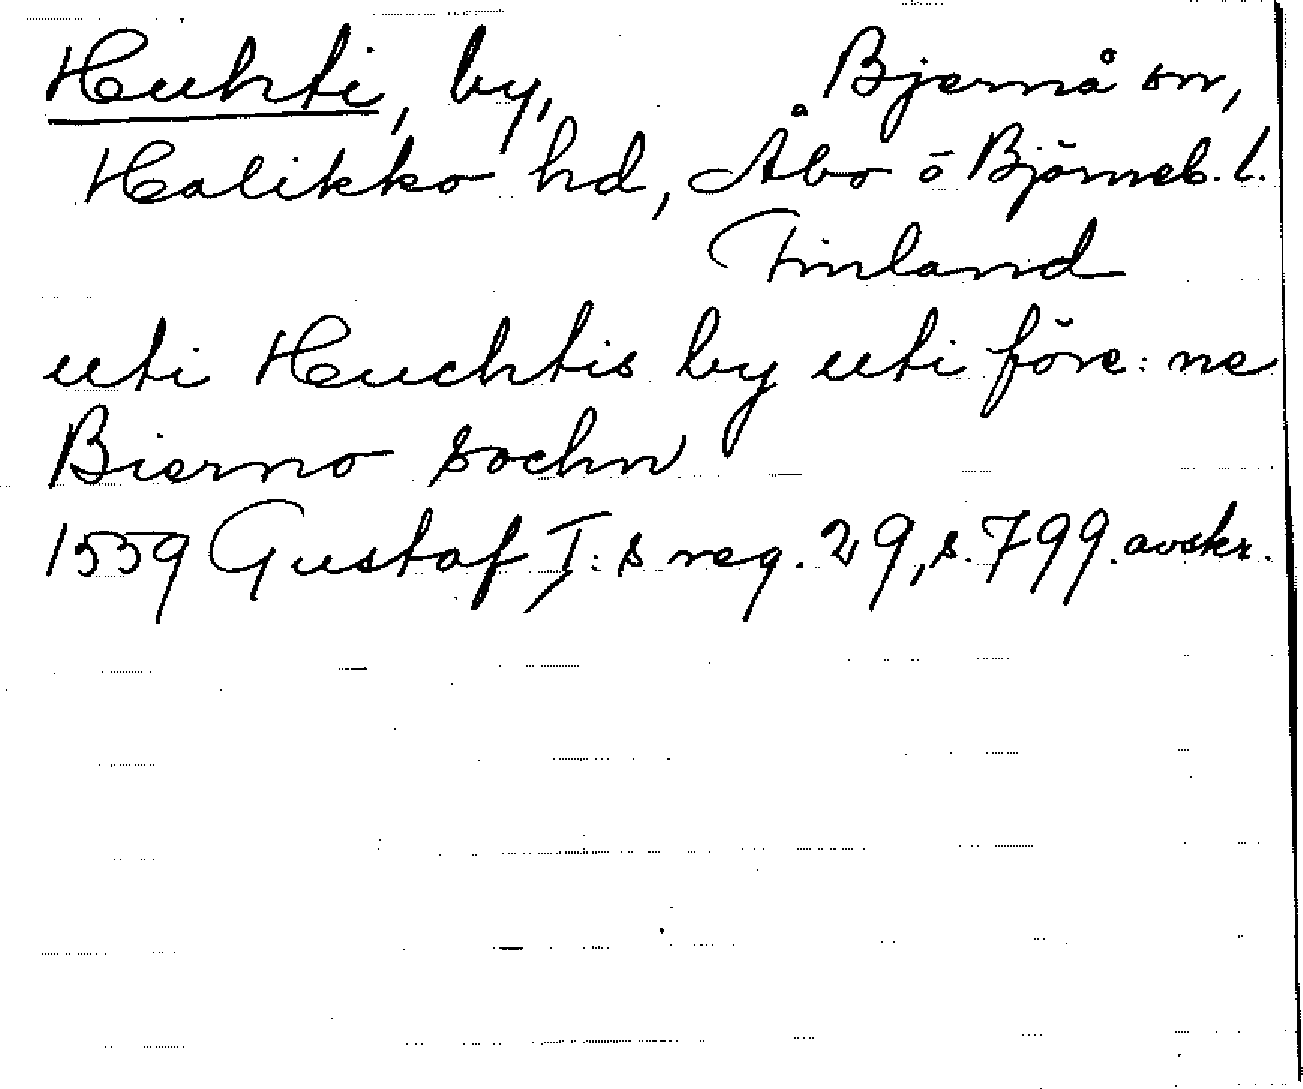 Huhti, by, Bjernå sn,
Halikko hd, Åbo ö Björneb. l.
Finland
uti Huchtis by uti före: ne
Bierno sochn
1559 Gustaf I: s reg. 29, s. 799. avskr.